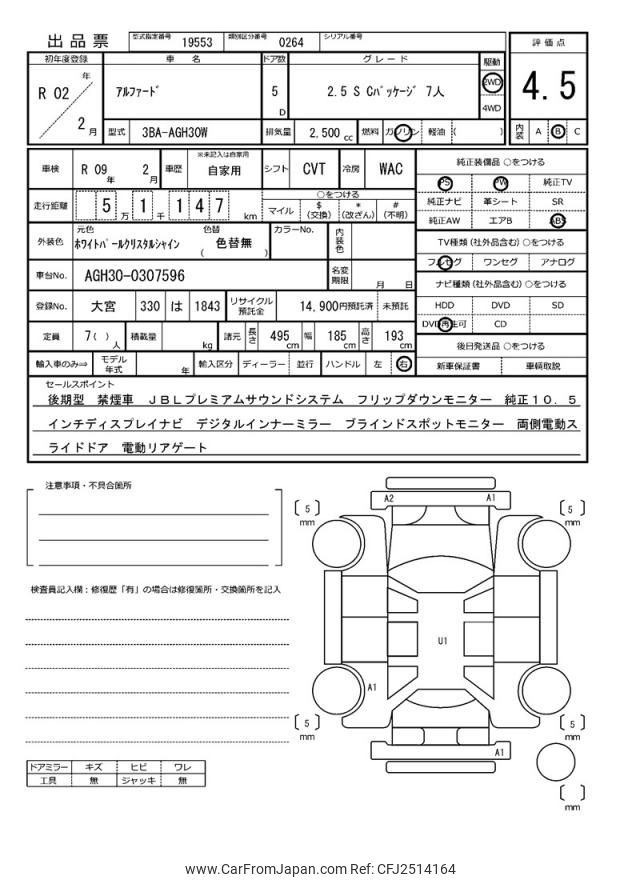 出品票 型式指定番号 19553 類別区分番号 0264 シリアル番号
初年度登録 車名 ドア数 グレード 駆動 評価点
R 02 年 2 月 アルファード 5 D 2.5 S Cパッケージ 7人 2WD 4WD 4.5
型式 3BA-AGH30W 排気量 2,500 cc 燃料 ガソリン 軽油 ( ) 内装 A B C
車検 R 09 年 2 月 車歴 ※未記入は自家用 自家用 シフト CVT 冷房 WAC
走行距離 5 万 1 千 1 4 7 km
○をつける
マイル $ (交換) * (改ざん) # (不明)
外装色 元色 ホワイトパールクリスタルシャイン 色替 ( 色替無 ) カラーNo. 内装色
車台No. AGH30-0307596 名変期限 月 日
登録No. 大宮 330 は 1843 リサイクル預託金 14,900円預託済 未預託
定員 7( ) 人 積載量 kg 諸元 長さ 495 cm 幅 185 cm 高さ 193 cm
輸入車のみ⇒ モデル年式 年 輸入区分 ディーラー 並行 ハンドル 左 右
純正装備品 ○をつける
PS PW 純正TV
純正ナビ 革シート SR
純正AW エアB ABS
TV種類 (社外品含む) ○をつける
フルセグ ワンセグ アナログ
ナビ種類 (社外品含む) ○をつける
HDD DVD SD
DVD再生可 CD
後日発送品 ○をつける
新車保証書 車輌取説
セールスポイント
後期型 禁煙車 JBLプレミアムサウンドシステム フリップダウンモニター 純正10.5
インチディスプレイナビ デジタルインナーミラー ブラインドスポットモニター 両側電動ス
ライドドア 電動リアゲート
注意事項・不具合箇所
検査員記入欄：修復歴「有」の場合は修復箇所・交換箇所を記入
A2 A1
[ 5 ] mm [ 5 ] mm
U1
A1
[ 5 ] mm [ 5 ] mm
A1
[ ] mm
ドアミラー キズ ヒビ ワレ
工具 無 ジャッキ 無
www.CarFromJapan.com Ref: CFJ2514164